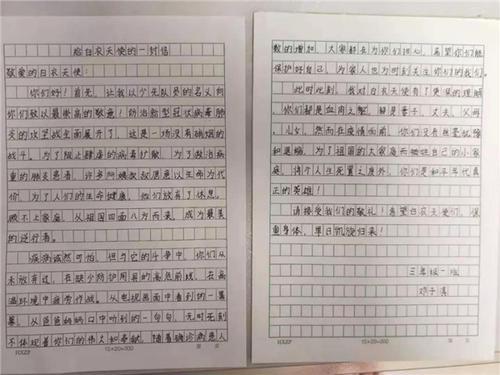 给白衣天使的一封信
敬爱的白衣天使：
你们好！首先，让我以个少先队员的名义向
你们致以最崇高的敬意！防治新型冠状病毒肺
炎的攻坚战全面展开了，这是一场没有硝烟的
战斗。为了阻止肆虐的病毒扩散，为了救治病
重的肺炎患者，许多阿姨叔叔愿意以生命为代
价，为了人们的生命健康，他们放弃了休息，
顾不上家庭，从祖国四面八方而来，成为最美
的逆行者。
疾病诚然可怕，但与它的斗争中，你们从
未放弃过，在缺少防护用具的高危前线，在病
毒环境中疲劳作战。从电视画面中看到的一幕
幕，从爸爸妈妈口中听到的一句句，无时无刻
不体现着你们的伟大和奉献，随着确诊病患人
HXZP 15×20=300
数的增加，大家都在为你们担心，希望你们能
保护好自己，为家人也为时刻关注你们的我们。
此时此刻，我对白衣天使有了更深的理解，
你们都是血肉之躯，都是妻子、丈夫、父母、
儿女，然而在疫情面前，你们没有丝毫犹豫
和退缩，为了祖国的大家庭而牺牲自己的小家
庭，将个人生死置之度外，你们是和平年代真
正的英雄！
请接受我们的敬礼！希望白衣天使们，保
重身体，早日凯旋归来！
三年级一班
邓子淇
HXZP 15×20=300